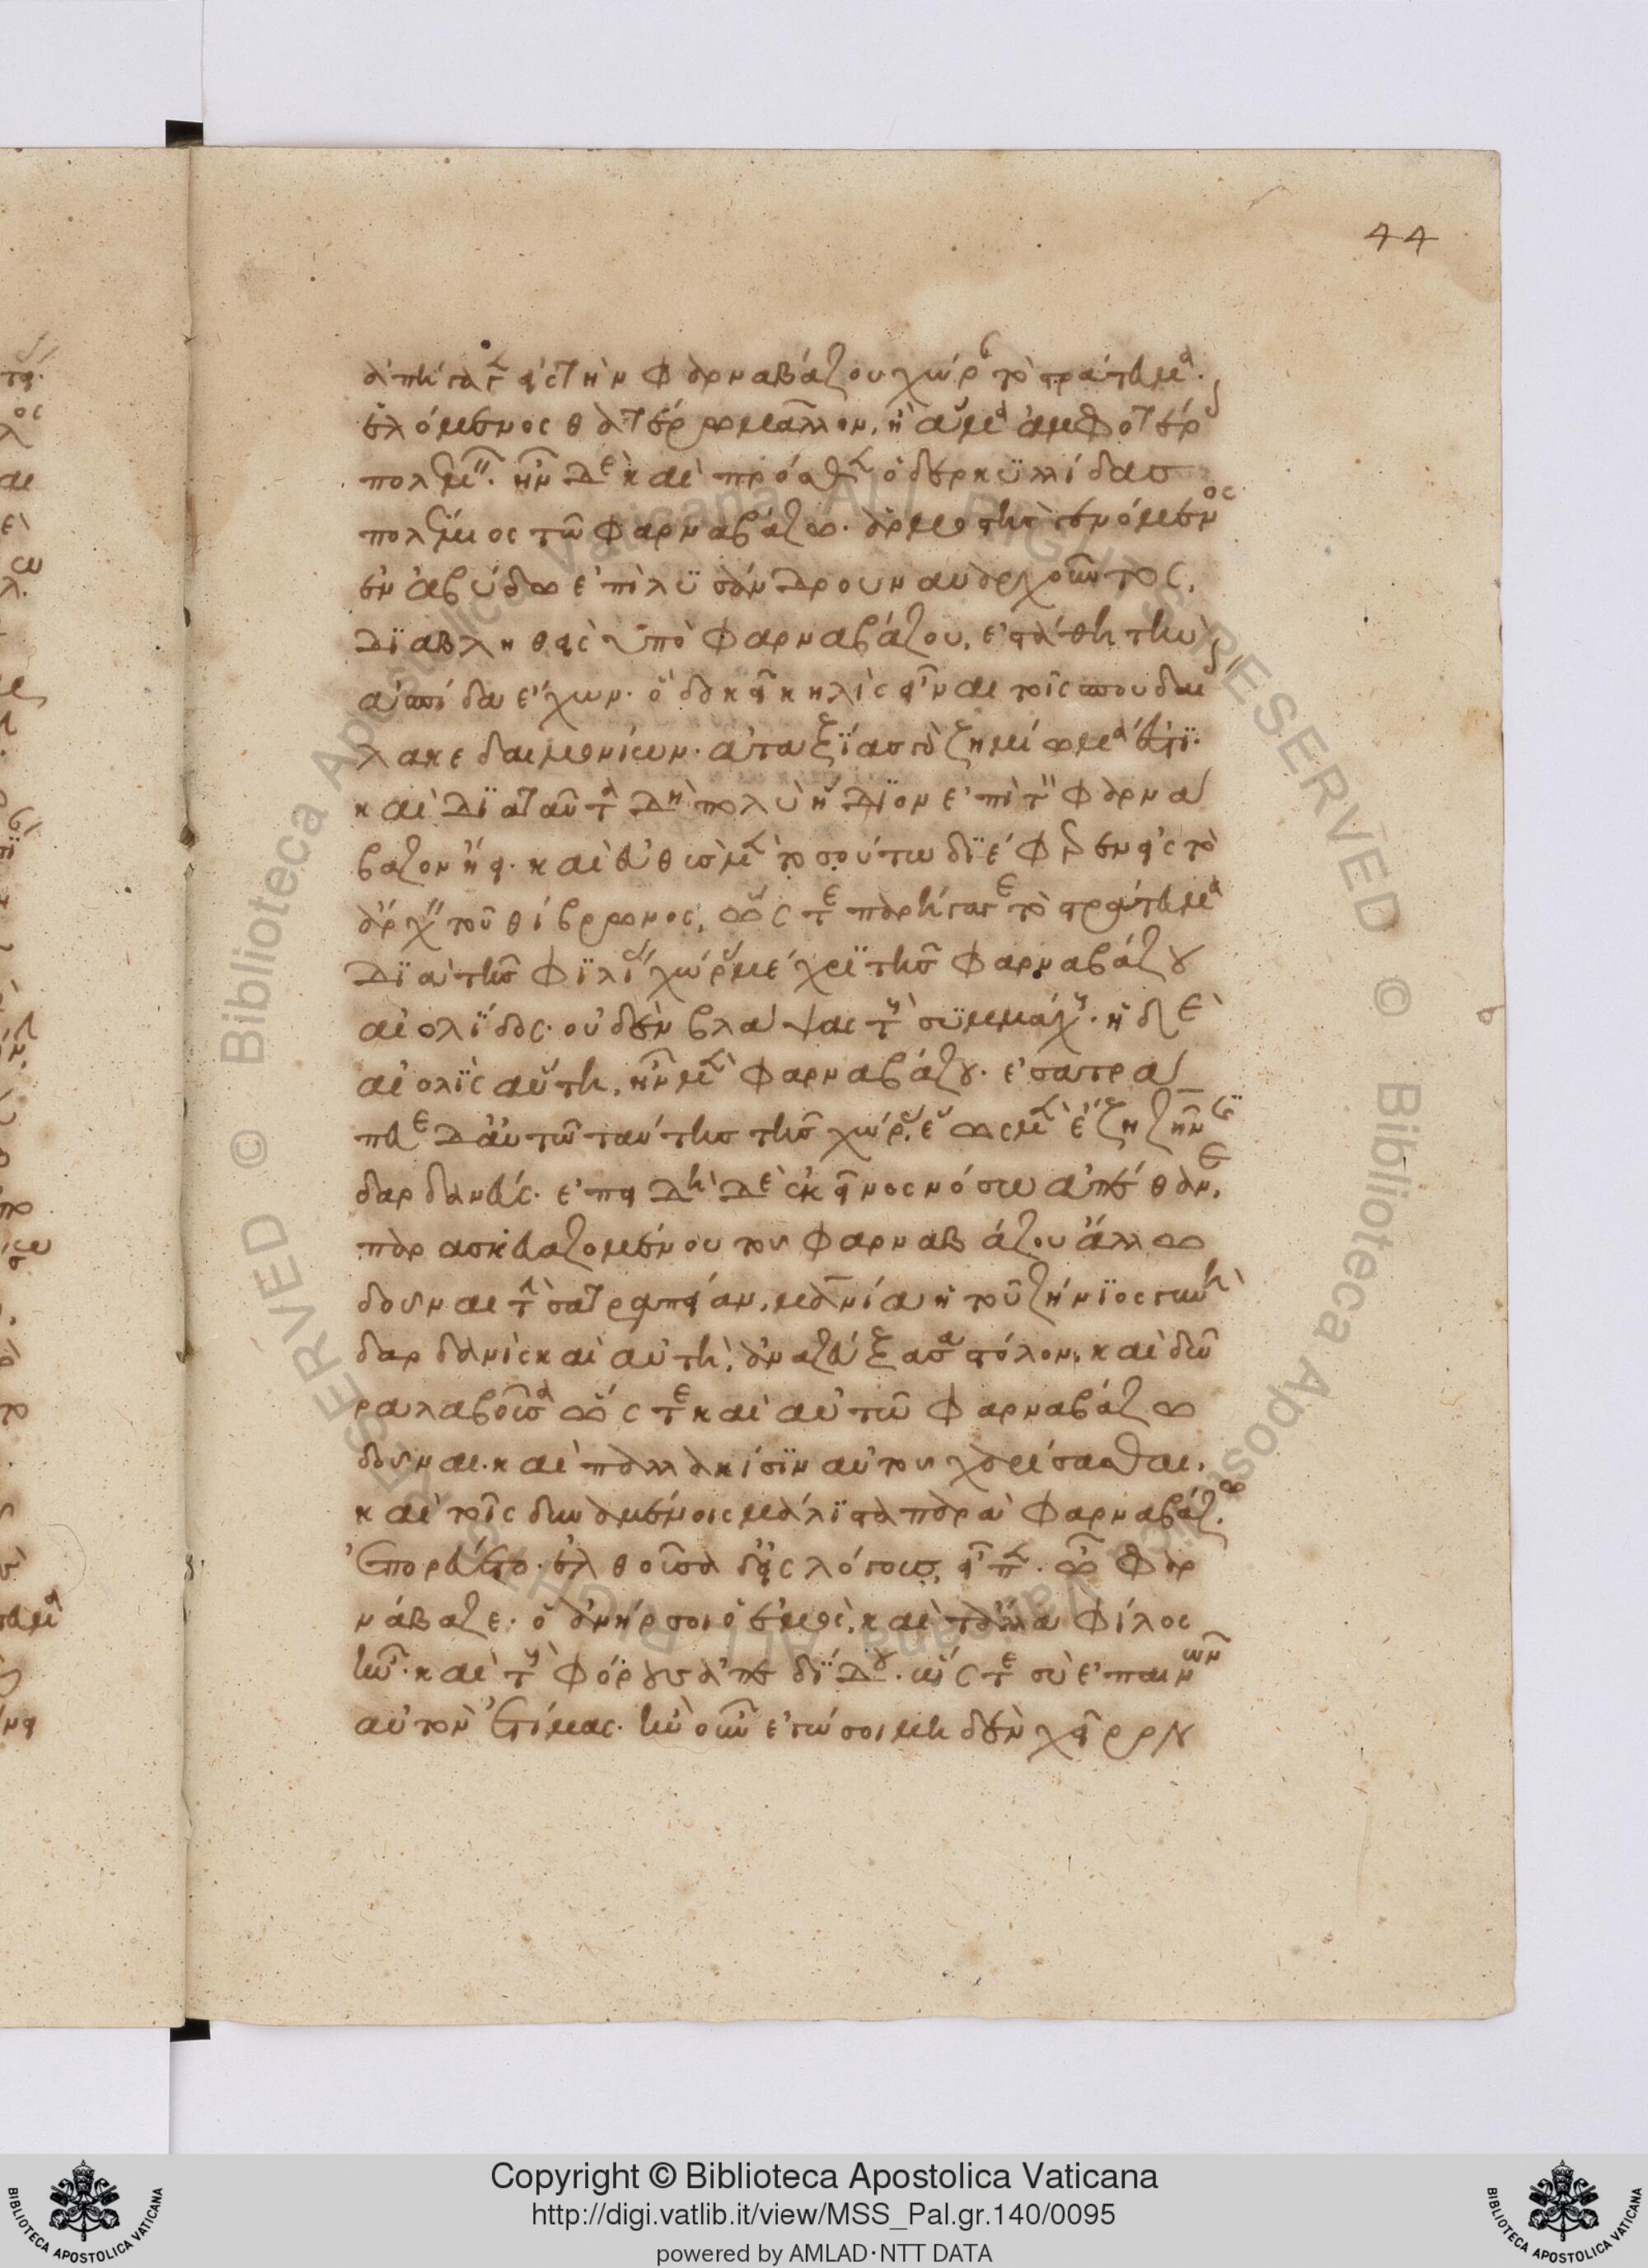 44
ἀπήγαγεν εἰς τὴν φαρναβάζου χώραν τὸ στράτευμα.
ἑλόμενος θατέρω μᾶλλον, ἢ ἅμα ἀμφοτέροις
πολεμεῖν. ἦν δὲ καὶ πρόσθεν ὁ δερκυλλίδας
πολέμιος τῶ φαρναβάζω. ἁρμοστὴς γενόμενος
ἐν ἀβύδω ἐπὶ λυσάνδρου ναυαρχοῦντος,
διαβληθεὶς ὑπὸ φαρναβάζου, ἐστάθη τὴν
ἀσπίδα ἔχων. ὃ δοκεῖ κηλὶς εἶναι τοῖς σπουδαίοις
λακεδαιμονίων. ἀταξίας γὰρ ζημίωμά ἐστι.
καὶ διὰ ταῦτα δὴ πολὺ ἥδιον ἐπὶ τὸν φαρνά
βαζον ἤει. καὶ εὐθὺς μὲν τοσούτω διέφερεν εἰς τὸ
ἄρχειν τοῦ θίβρωνος, ὥστε παρήγαγε τὸ στράτευμα
διὰ τῆς φιλίας χώρας μέχρι τῆς φαρναβάζου
αἰολίδος. οὐδὲν βλάψας τοὺς συμμάχους. ἡ δὲ
αἰολὶς αὕτη, ἦν μὲν φαρναβάζου. ἐσατρά
πευε δ' αὐτῶ ταύτης τῆς χώρας, ἕως μὲν ἔζη ζῆνις
δαρδανεύς. ἐπειδὴ δὲ ἐκεῖνος νόσω ἀπέθανε,
παρασκευαζομένου τοῦ φαρναβάζου ἄλλω
δοῦναι τὴν σατραπείαν, μανία ἡ τοῦ ζήνιος γυνὴ
δαρδανὶς καὶ αὐτὴ, ἀναζεύξασα στόλον, καὶ δῶ
ρα λαβοῦσα ὥστε καὶ αὐτῶ φαρναβάζω
δοῦναι. καὶ παλλακίσιν αὐτοῦ χαρίσασθαι,
καὶ τοῖς δυναμένοις μάλιστα παρὰ φαρναβάζω.
ἐπορεύετο. ἐλθοῦσα δ' εἰς λόγους, εἶπεν. ὦ φαρ
νάβαζε. ὁ ἀνήρ σοι ὁ ἐμὸς, καὶ τἄλλα φίλος
ἦν. καὶ τοὺς φόρους ἀπεδίδου. ὥστε σὺ ἐπαινῶν
αὐτὸν ἐτίμας. ἢν οὖν ἐγώ σοι μηδὲν χεῖρον
Copyright © Biblioteca Apostolica Vaticana
http://digi.vatlib.it/view/MSS_Pal.gr.140/0095
powered by AMLAD·NTT DATA